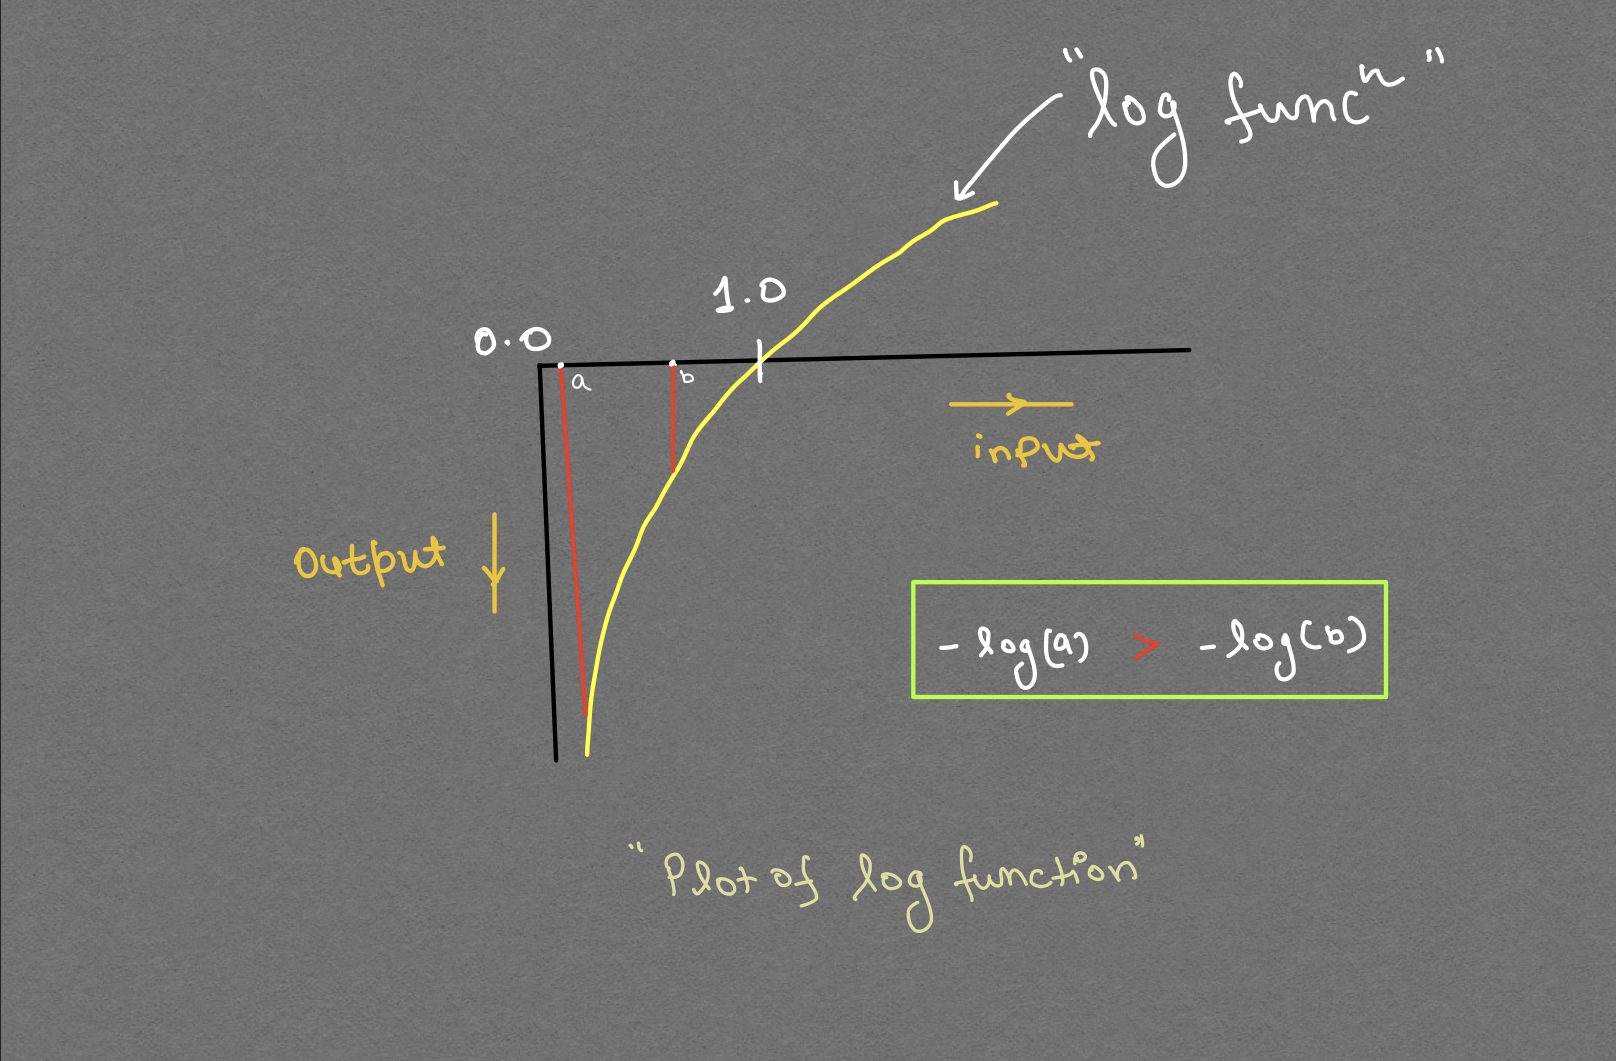 "log funcⁿ"
1.0
0.0
a
b
input
Output
- log(a) > - log(b)
"Plot of log function"